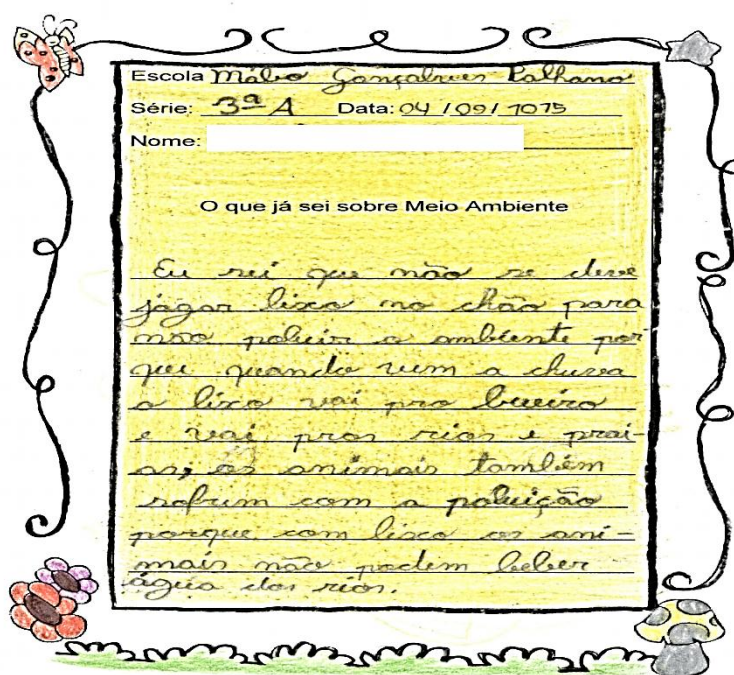 Escola Mábio Gonçalves Palhano
Série: 3ª A Data: 04 / 09 / 2015
Nome:
O que já sei sobre Meio Ambiente
Eu sei que não se deve
jogar lixo no chão para
não poluir o ambiente por
que quando vem a chuva
o lixo vai pro bueiro
e vai pros rios e prai-
as, os animais também
sofrem com a poluição
porque com lixo os ani-
mais não podem beber
água dos rios.